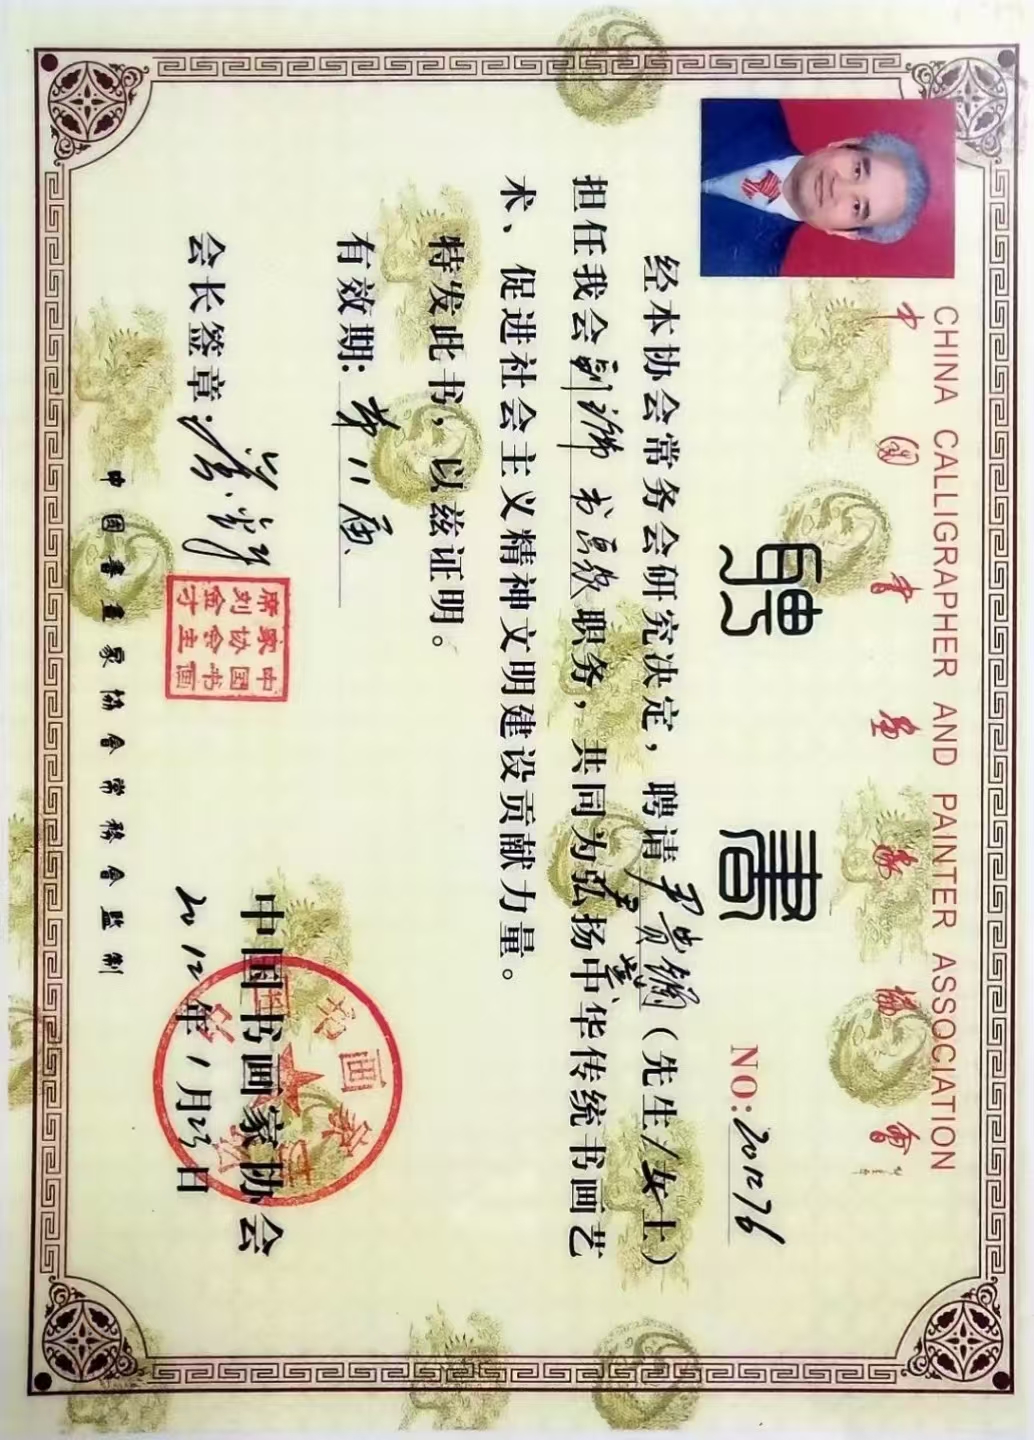 CHINA CALLIGRAPHER AND PAINTER ASSOCIATION
中国書画家協會
聘書
NO:201276
经本协会常务会研究决定，聘请尹贵（先生/女士）
担任我会职务，共同为弘扬中华传统书画艺
术、促进社会主义精神文明建设贡献力量。
特发此书，以兹证明。
有效期：第八届
会长签章：
中国书画
家协会主
席刘金
中国书画家协会
2012年1月23日
中國書畫家協會常務會監制